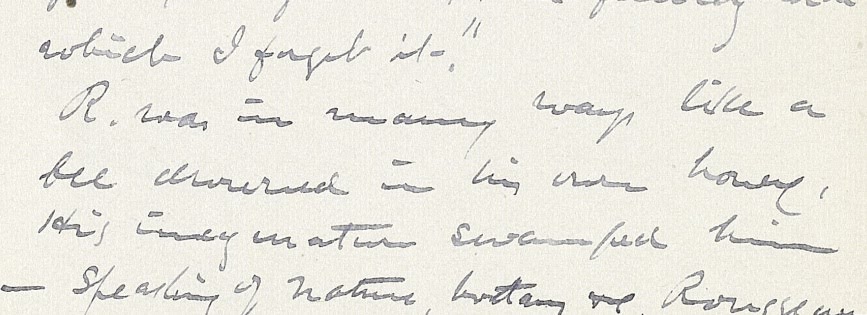 which I forget it."
R. was in many ways like a
bee drowned in his own honey,
His imagination swamped him
— Speaking of nature, botany Rousseau